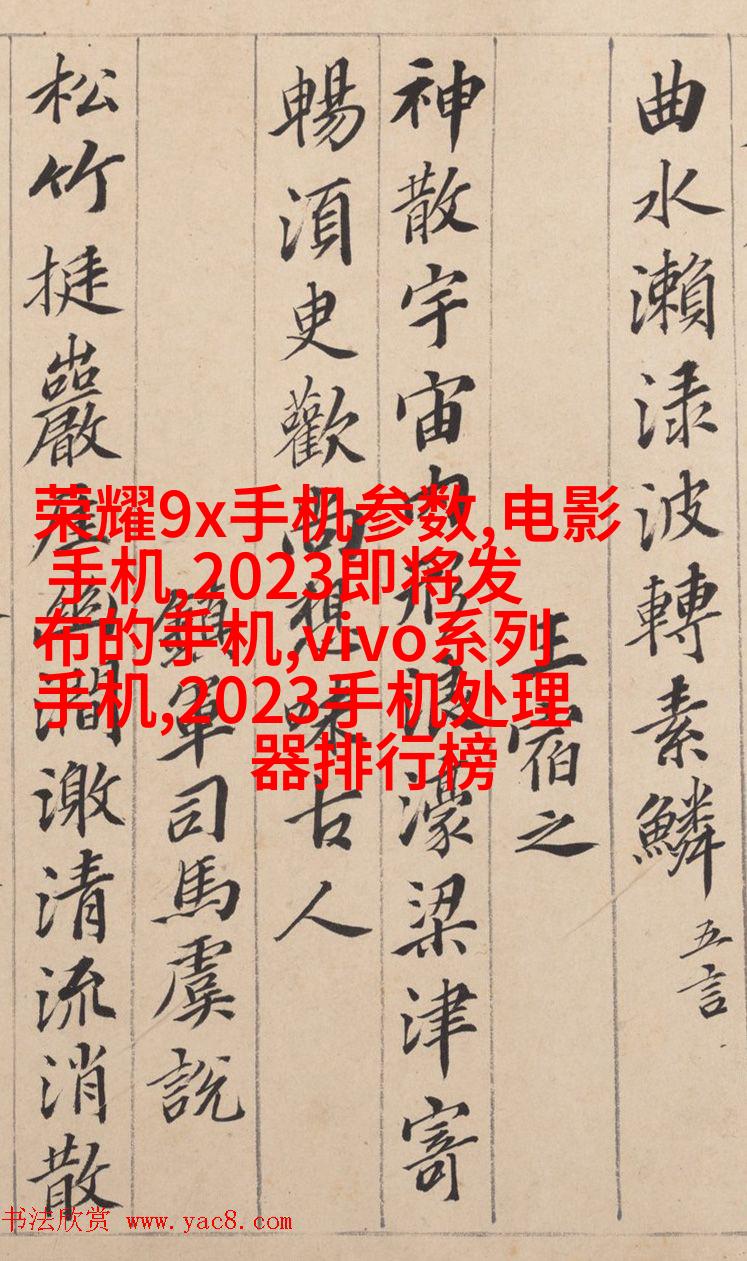 曲水瀨淥波轉素鱗 五言
王宿之
神散宇宙內形浪濠梁津寄
暢湏臾歡尚想味古人
鎮軍司馬虞說
松竹挺巖崖幽澗激清流消散
荣耀9x手机参数,电影
手机,2023即将发
布的手机,vivo系列
手机,2023手机处理
器排行榜
书法欣赏 www.yac8.com